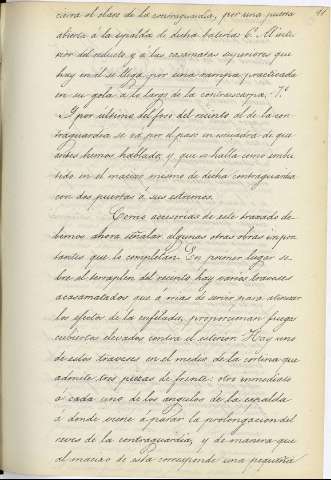 caira al claro de la contraguardia, por una puerta
abierta á la espalda de dicha bateria 6.ª Al inte-
rior del reducto y á las casamatas superiores que
hay en él se llega por una rampa practicada
en su gola á lo largo de la contraescarpa. 7.ª
Y por ultimo del foso del recinto al de la con-
traguardia se vá por el paso en escuadra de que
antes hemos hablado, y que se halla como embu-
tido en el macizo mismo de dicha contraguardia
con dos puertas á sus estremos.
Como accesorias de este trazado de-
bemos ahora señalar algunas otras obras impor-
tantes que lo completan. En primer lugar so-
bre el terraplen del recinto hay varios traveses
acasamatados que á mas de servir para atenuar
los efectos de la enfilada, proporcionan fuegos
cubiertos elevados contra el exterior. Hay uno
de estos traveses en el medio de la cortina que
admite tres piezas de frente: otro inmediato
á cada uno de los ángulos de la espalda
á donde viene á parar la prolongacion del
reves de la contraguardia, y de manera que
al macizo de esta corresponde una pequeña